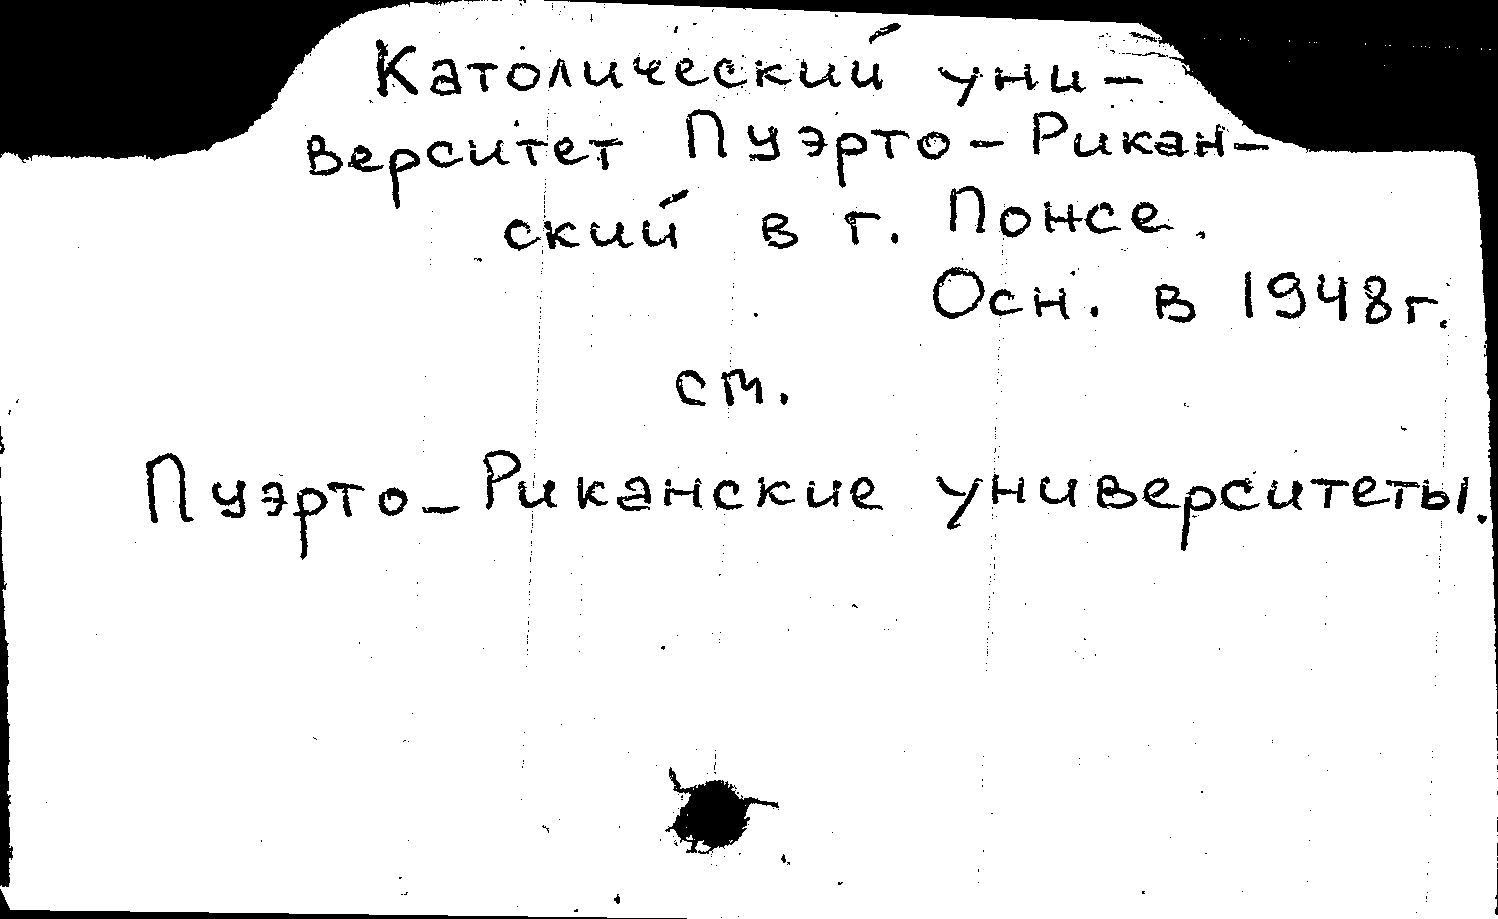 Католический уни-
верситет Пуэрто-Рикан-
ский в г. Понсе.
Осн. в 1948г.
см.
Пуэрто-Риканские университеты.